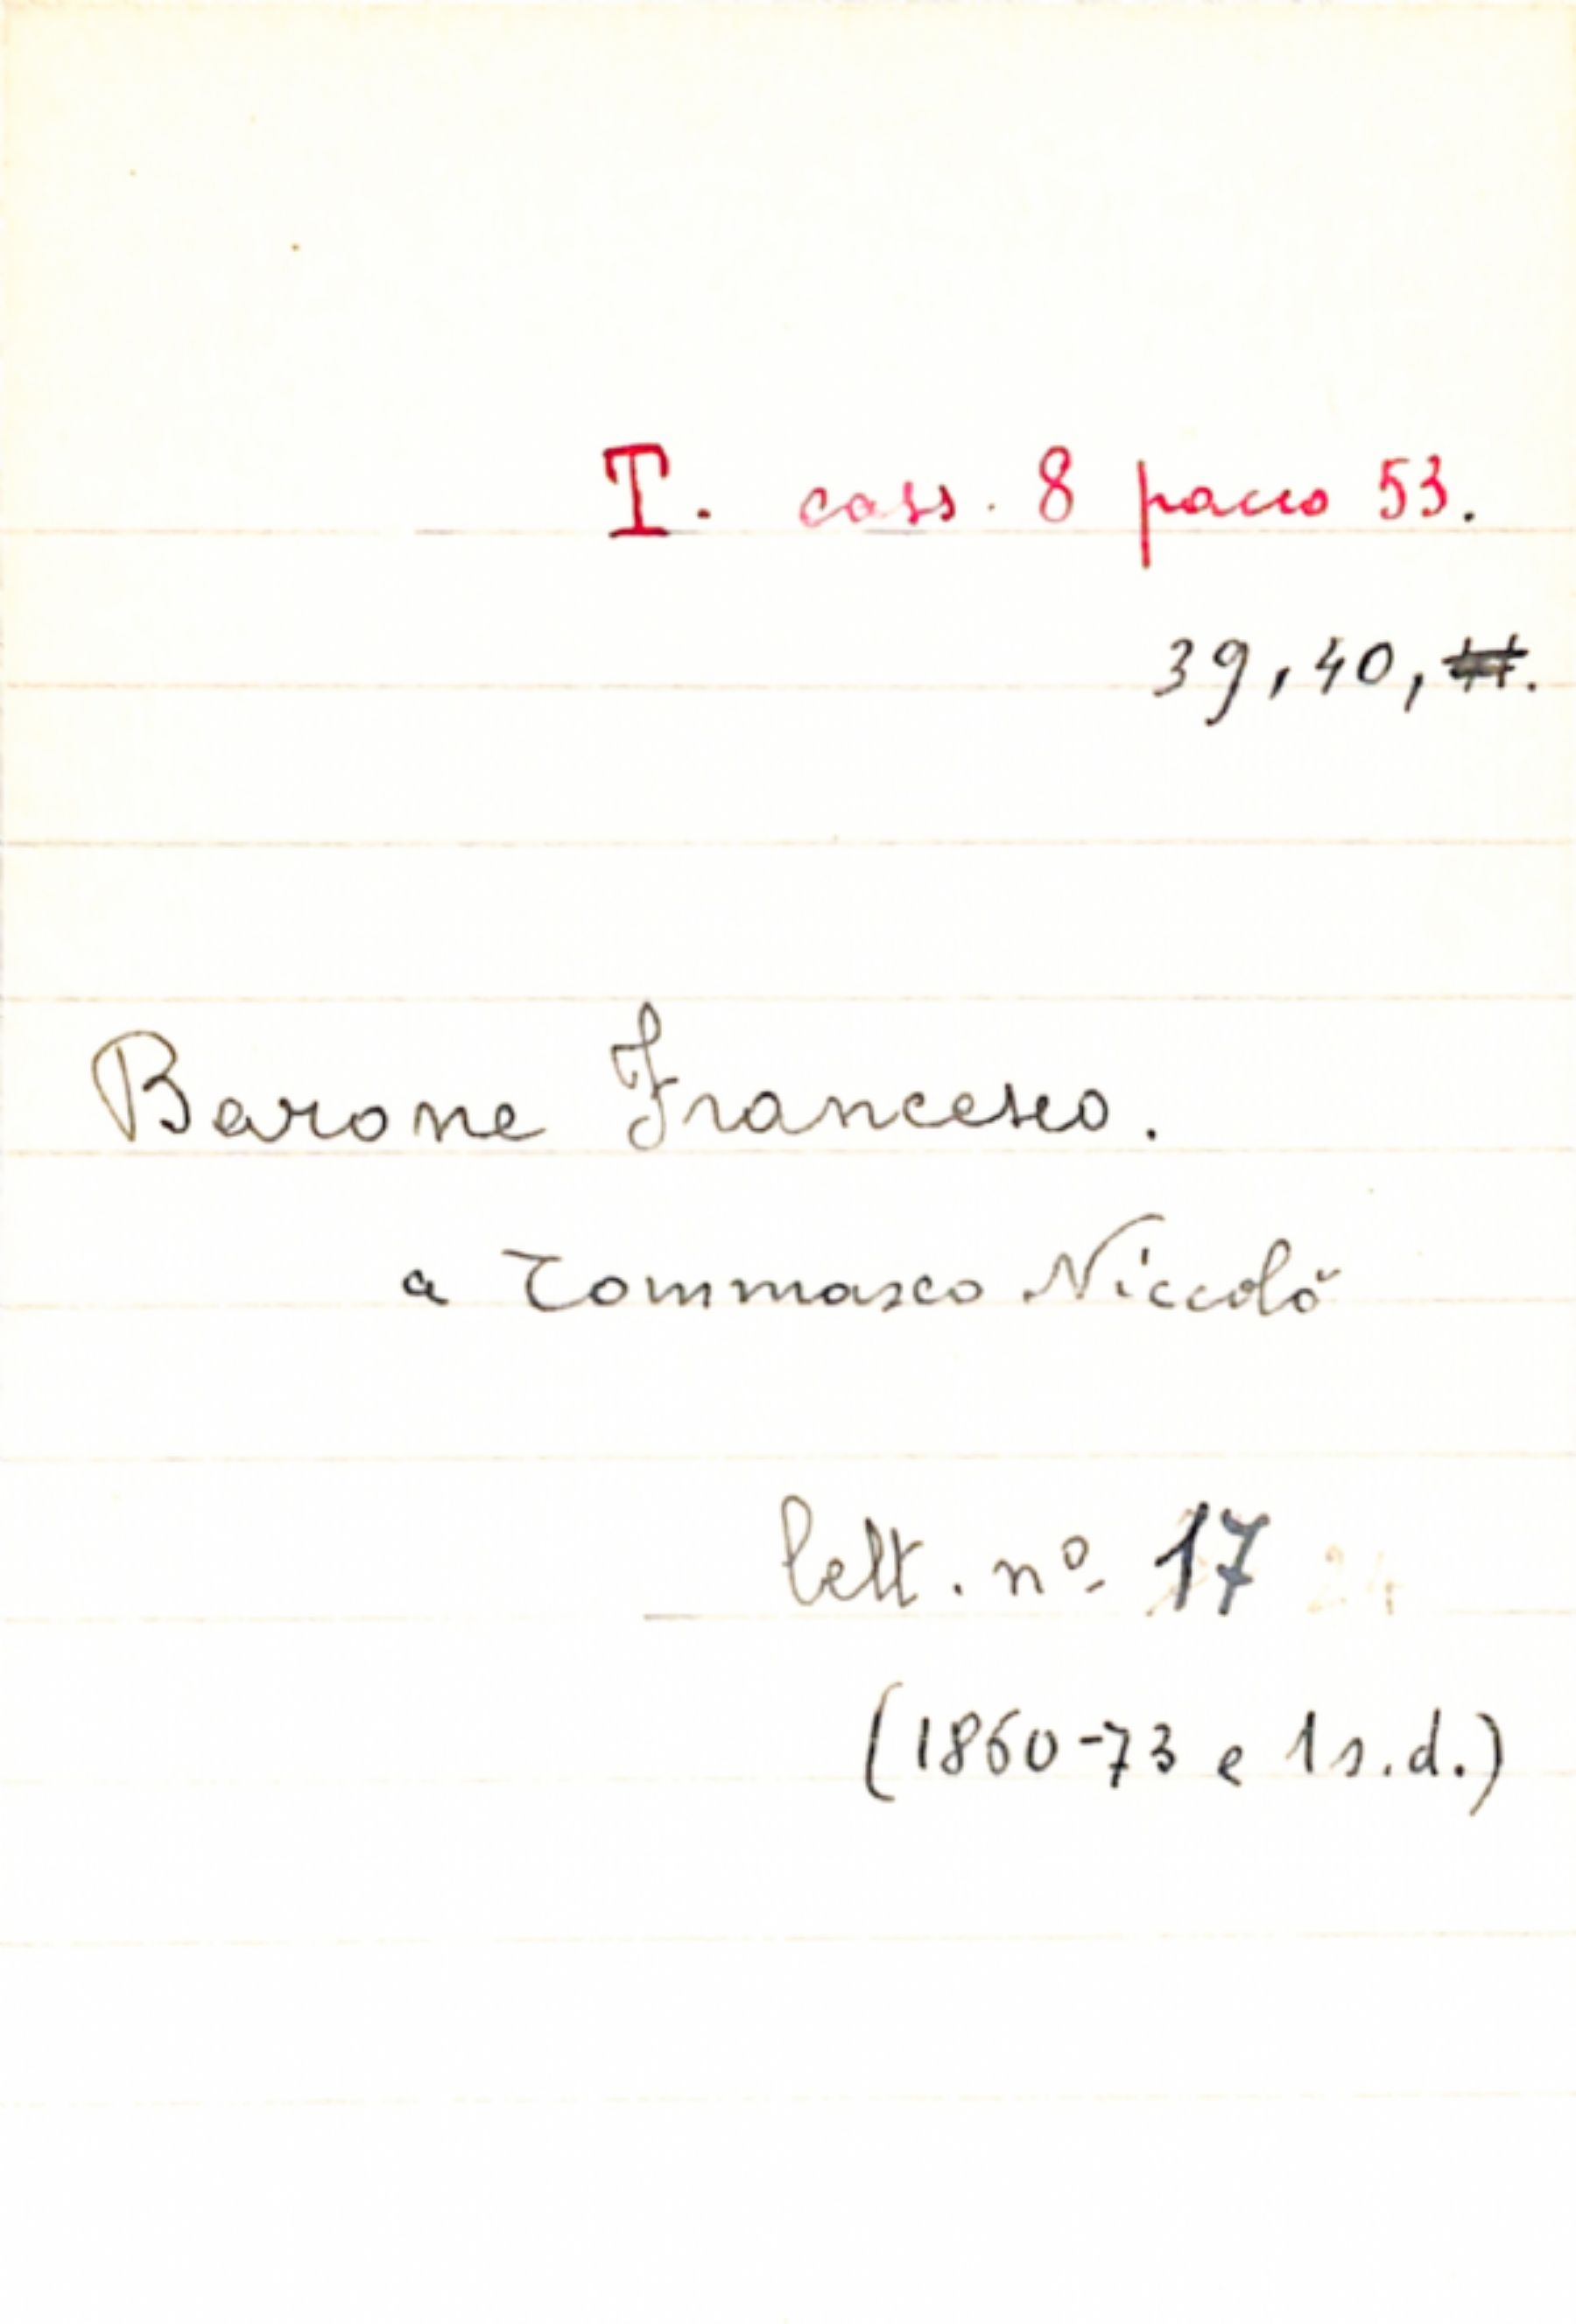 T. cass. 8 pacco 53.
39, 40,
Barone Francesco.
a Tommaseo Niccolò
lett. nº 17
(1860-73 e 1 s.d.)